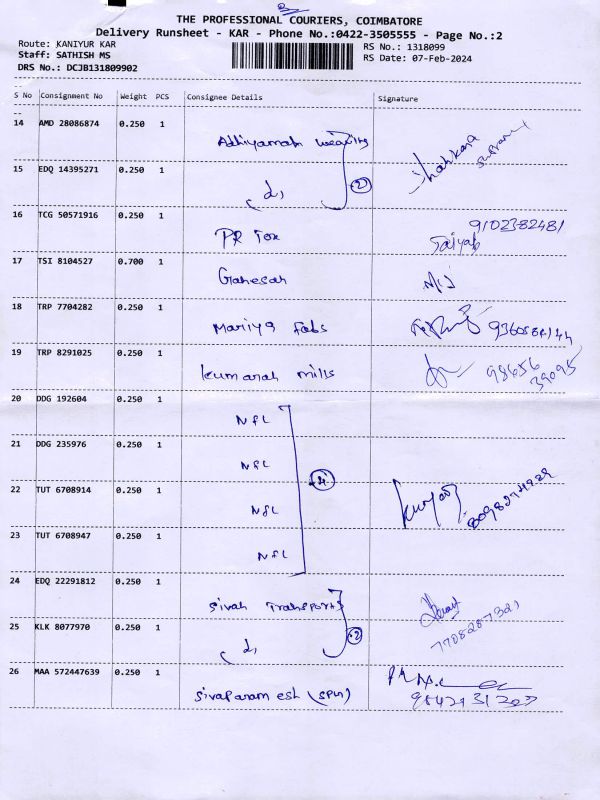 THE PROFESSIONAL COURIERS, COIMBATORE
Delivery Runsheet - KAR - Phone No.:0422-3505555 - Page No.:2
Route: KANIYUR KAR
Staff: SATHISH MS
DRS No.: DCJB131809902
RS No.: 1318099
RS Date: 07-Feb-2024
S No Consignment No Weight PCS Consignee Details Signature
14 AMD 28086874 0.250 1
15 EDQ 14395271 0.250 1 (2)
16 TCG 50571916 0.250 1 PR Tex 9102382481
17 TSI 8104527 0.700 1 Ganesan
18 TRP 7704282 0.250 1 Mariya Fabs
19 TRP 8291025 0.250 1 kumaran mills 98656 39095
20 DDG 192604 0.250 1 NFL
21 DDG 235976 0.250 1 NFL (4)
22 TUT 6708914 0.250 1 NFL
23 TUT 6708947 0.250 1 NFL
24 EDQ 22291812 0.250 1 Sivan Transports
25 KLK 8077970 0.250 1 (2) 7708287321
26 MAA 572447639 0.250 1